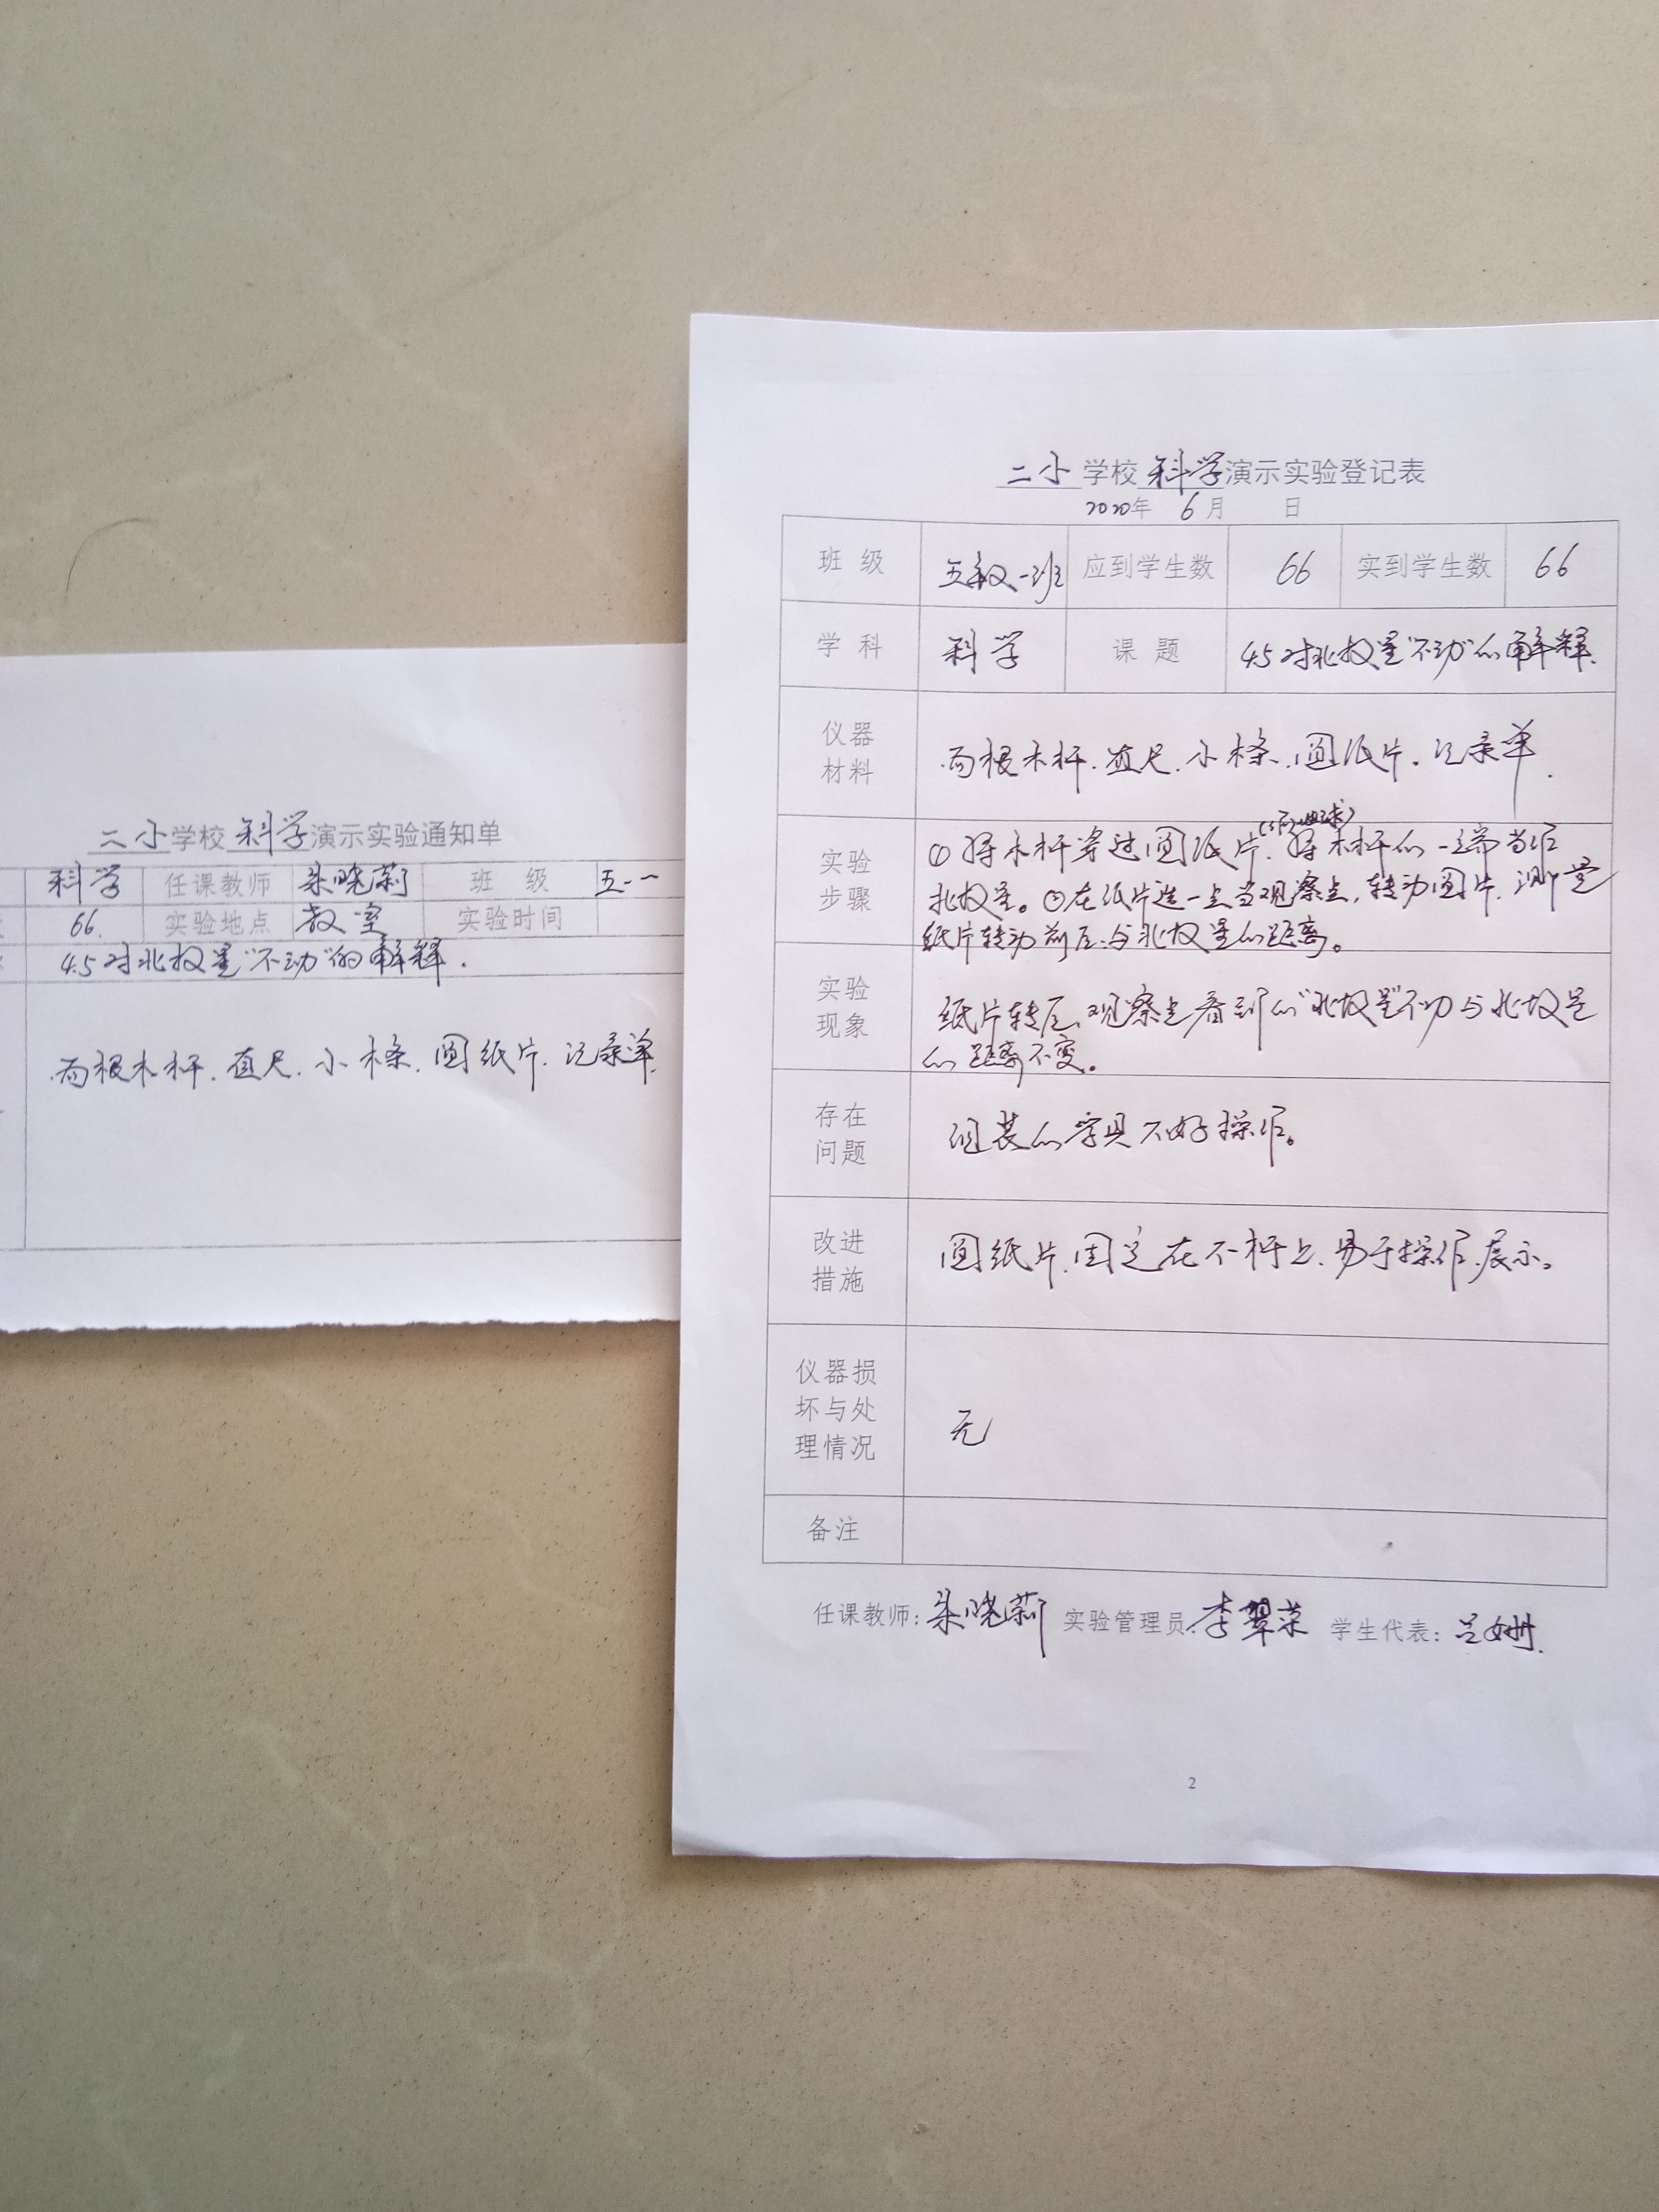 二小学校科学演示实验通知单
科学 任课教师 朱晓莉 班 级 五·一
66. 实验地点 教室 实验时间
4.5对北极星“不动”的解释.
两根木杆.直尺.小木条.圆纸片.记录单.
二小学校科学演示实验登记表
2020年 6月 日
班 级 五年级一班 应到学生数 66 实到学生数 66
学 科 科学 课 题 4.5对北极星“不动”的解释.
仪器
材料
两根木杆.直尺.小木条.圆纸片.记录单.
实验
步骤
①将木杆穿过圆纸片.将木杆的一端当作
北极星。②在纸片选一点当观察点,转动圆片.测量
纸片转动前后与北极星的距离。
实验
现象
纸片转后,观察点看到的“北极星”不动与北极星
的距离不变。
存在
问题
组装的学具不好操作。
改进
措施
圆纸片.固定在木杆上.易于操作.展示。
仪器损
坏与处
理情况
无
备注
任课教师:朱晓莉 实验管理员:李翠荣 学生代表:吕姗.
2